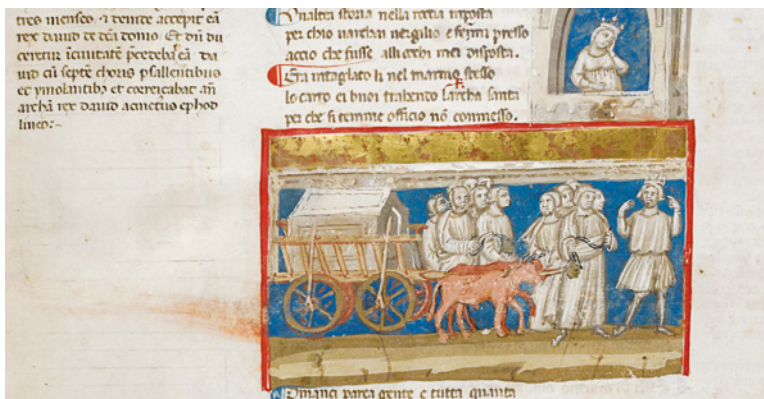 tres menses · et
accepit eã
rex dauid de
Et dũ du
ceretur
dauid cũ septẽ choris psallentibus
et ymolantibʒ et
archã rex dauid acinctus ephod
lineo :~
Unaltra storia nella roccia imposta
per chio uarchai uergilio e fecimi presso
accio che fusse alli occhi miei disposta .
Era intagliato li nel marmo stesso
lo carro ei buoi trahendo larcha santa
per che si temme officio nõ commesso .
Dinanci parea gente e tutta quanta